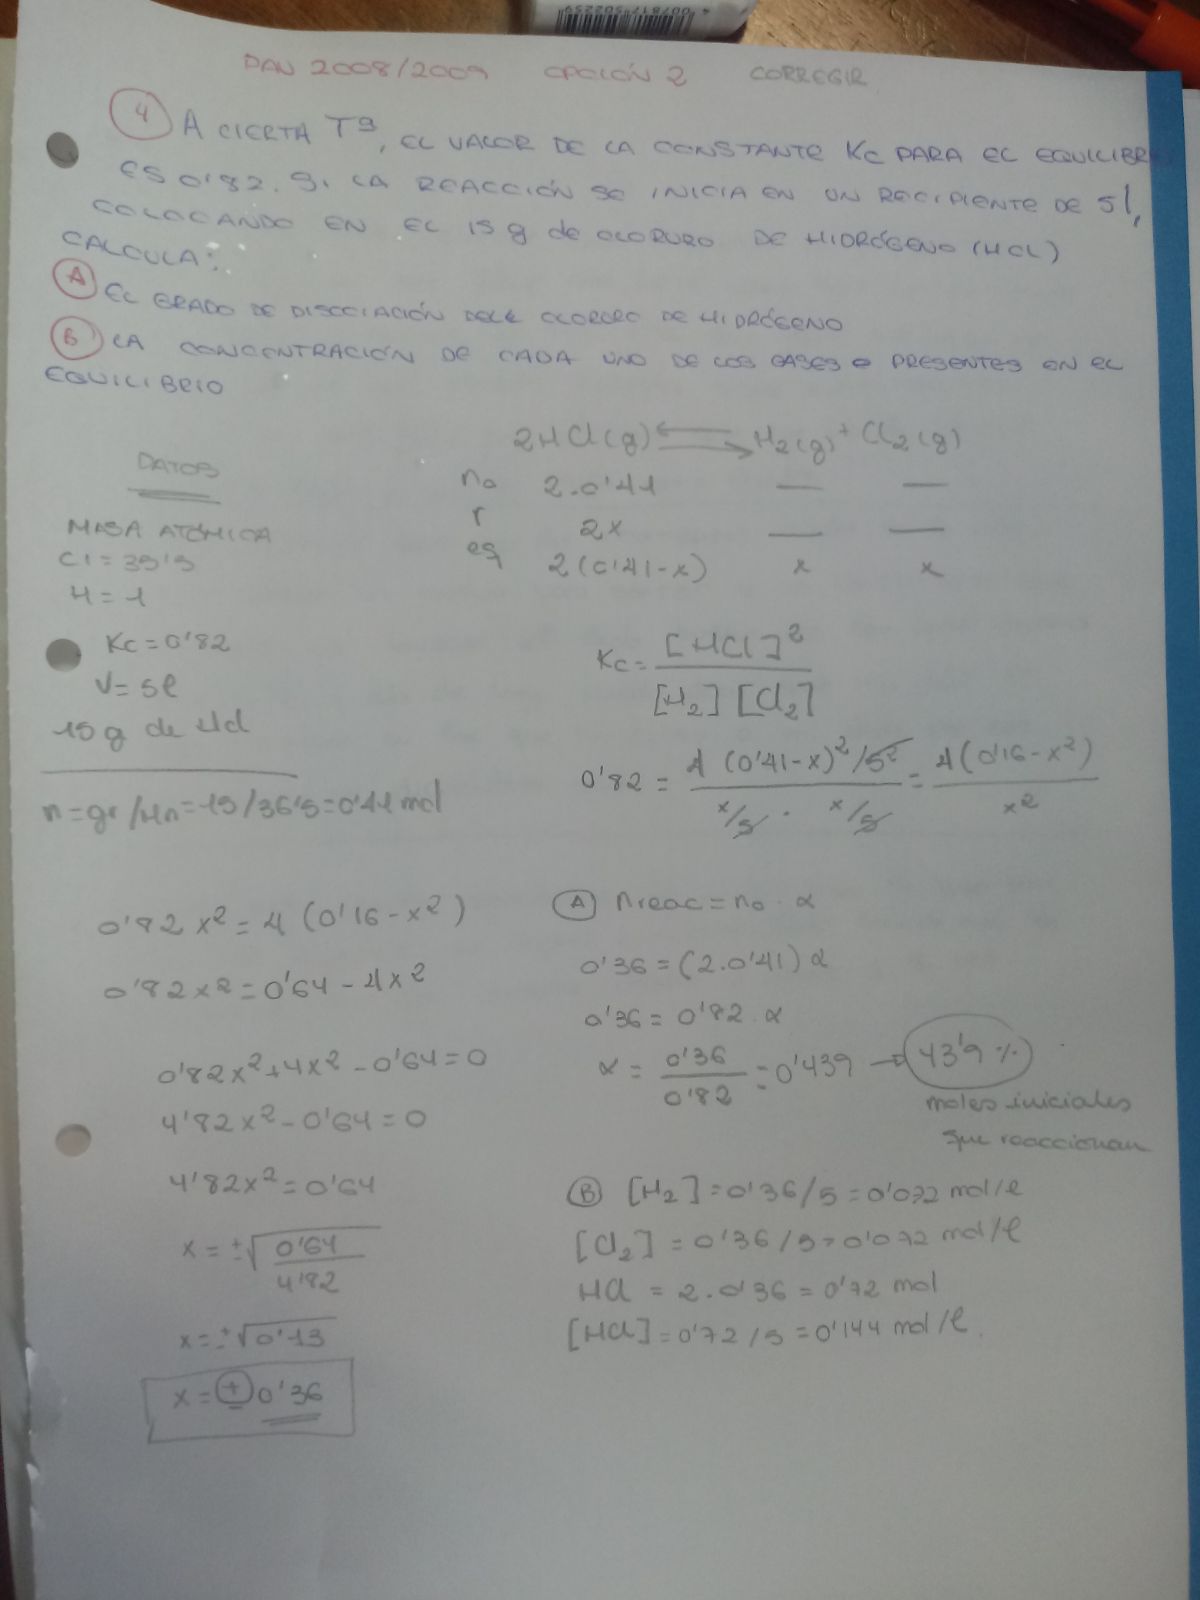 4 007817 502259
PAU 2008/2009 OPCIÓN 2 CORREGIR
4 A CIERTA Tª, EL VALOR DE LA CONSTANTE Kc PARA EL EQUILIBR
ES 0'82. Si LA REACCIÓN SE INICIA EN UN RECIPIENTE DE 5l,
COLOCANDO EN EL 15 g de CLORURO DE HIDRÓGENO (HCL)
CALCULA:
A EL GRADO DE DISOCIACIÓN DELE CLORURO DE HIDRÓGENO
B LA CONCENTRACIÓN DE CADA UNO DE LOS GASES PRESENTES EN EL
EQUILIBRIO
2HCl(g) ⇄ H2(g) + Cl2(g)
DATOS
no 2.0'41 — —
r 2x — —
eq 2(0'41-x) x x
MASA ATÓMICA
Cl = 35'5
H = 1
Kc = 0'82
V = 5l
15 g de Hcl
n = gr/Mn = 15/36'5 = 0'41 mol
Kc = [HCl]² / [H2] [Cl2]
0'82 = 4 (0'41-x)²/5² / x/5 . x/5 = 4(0'16-x²) / x²
0'82 x² = 4 (0'16-x²)
0'82x² = 0'64 - 4x²
0'82x²+4x² - 0'64 = 0
4'82x² - 0'64 = 0
4'82x² = 0'64
x = ±√0'64/4'82
x = ±√0'13
x = ± 0'36
A nreac = no . α
0'36 = (2.0'41) α
0'36 = 0'82 . α
α = 0'36/0'82 = 0'439 → 43'9 %
moles iniciales
que reaccionan
B [H2] = 0'36/5 = 0'072 mol/l
[Cl2] = 0'36/5 = 0'072 mol/l
HCl = 2.0'36 = 0'72 mol
[HCl] = 0'72/5 = 0'144 mol/l.